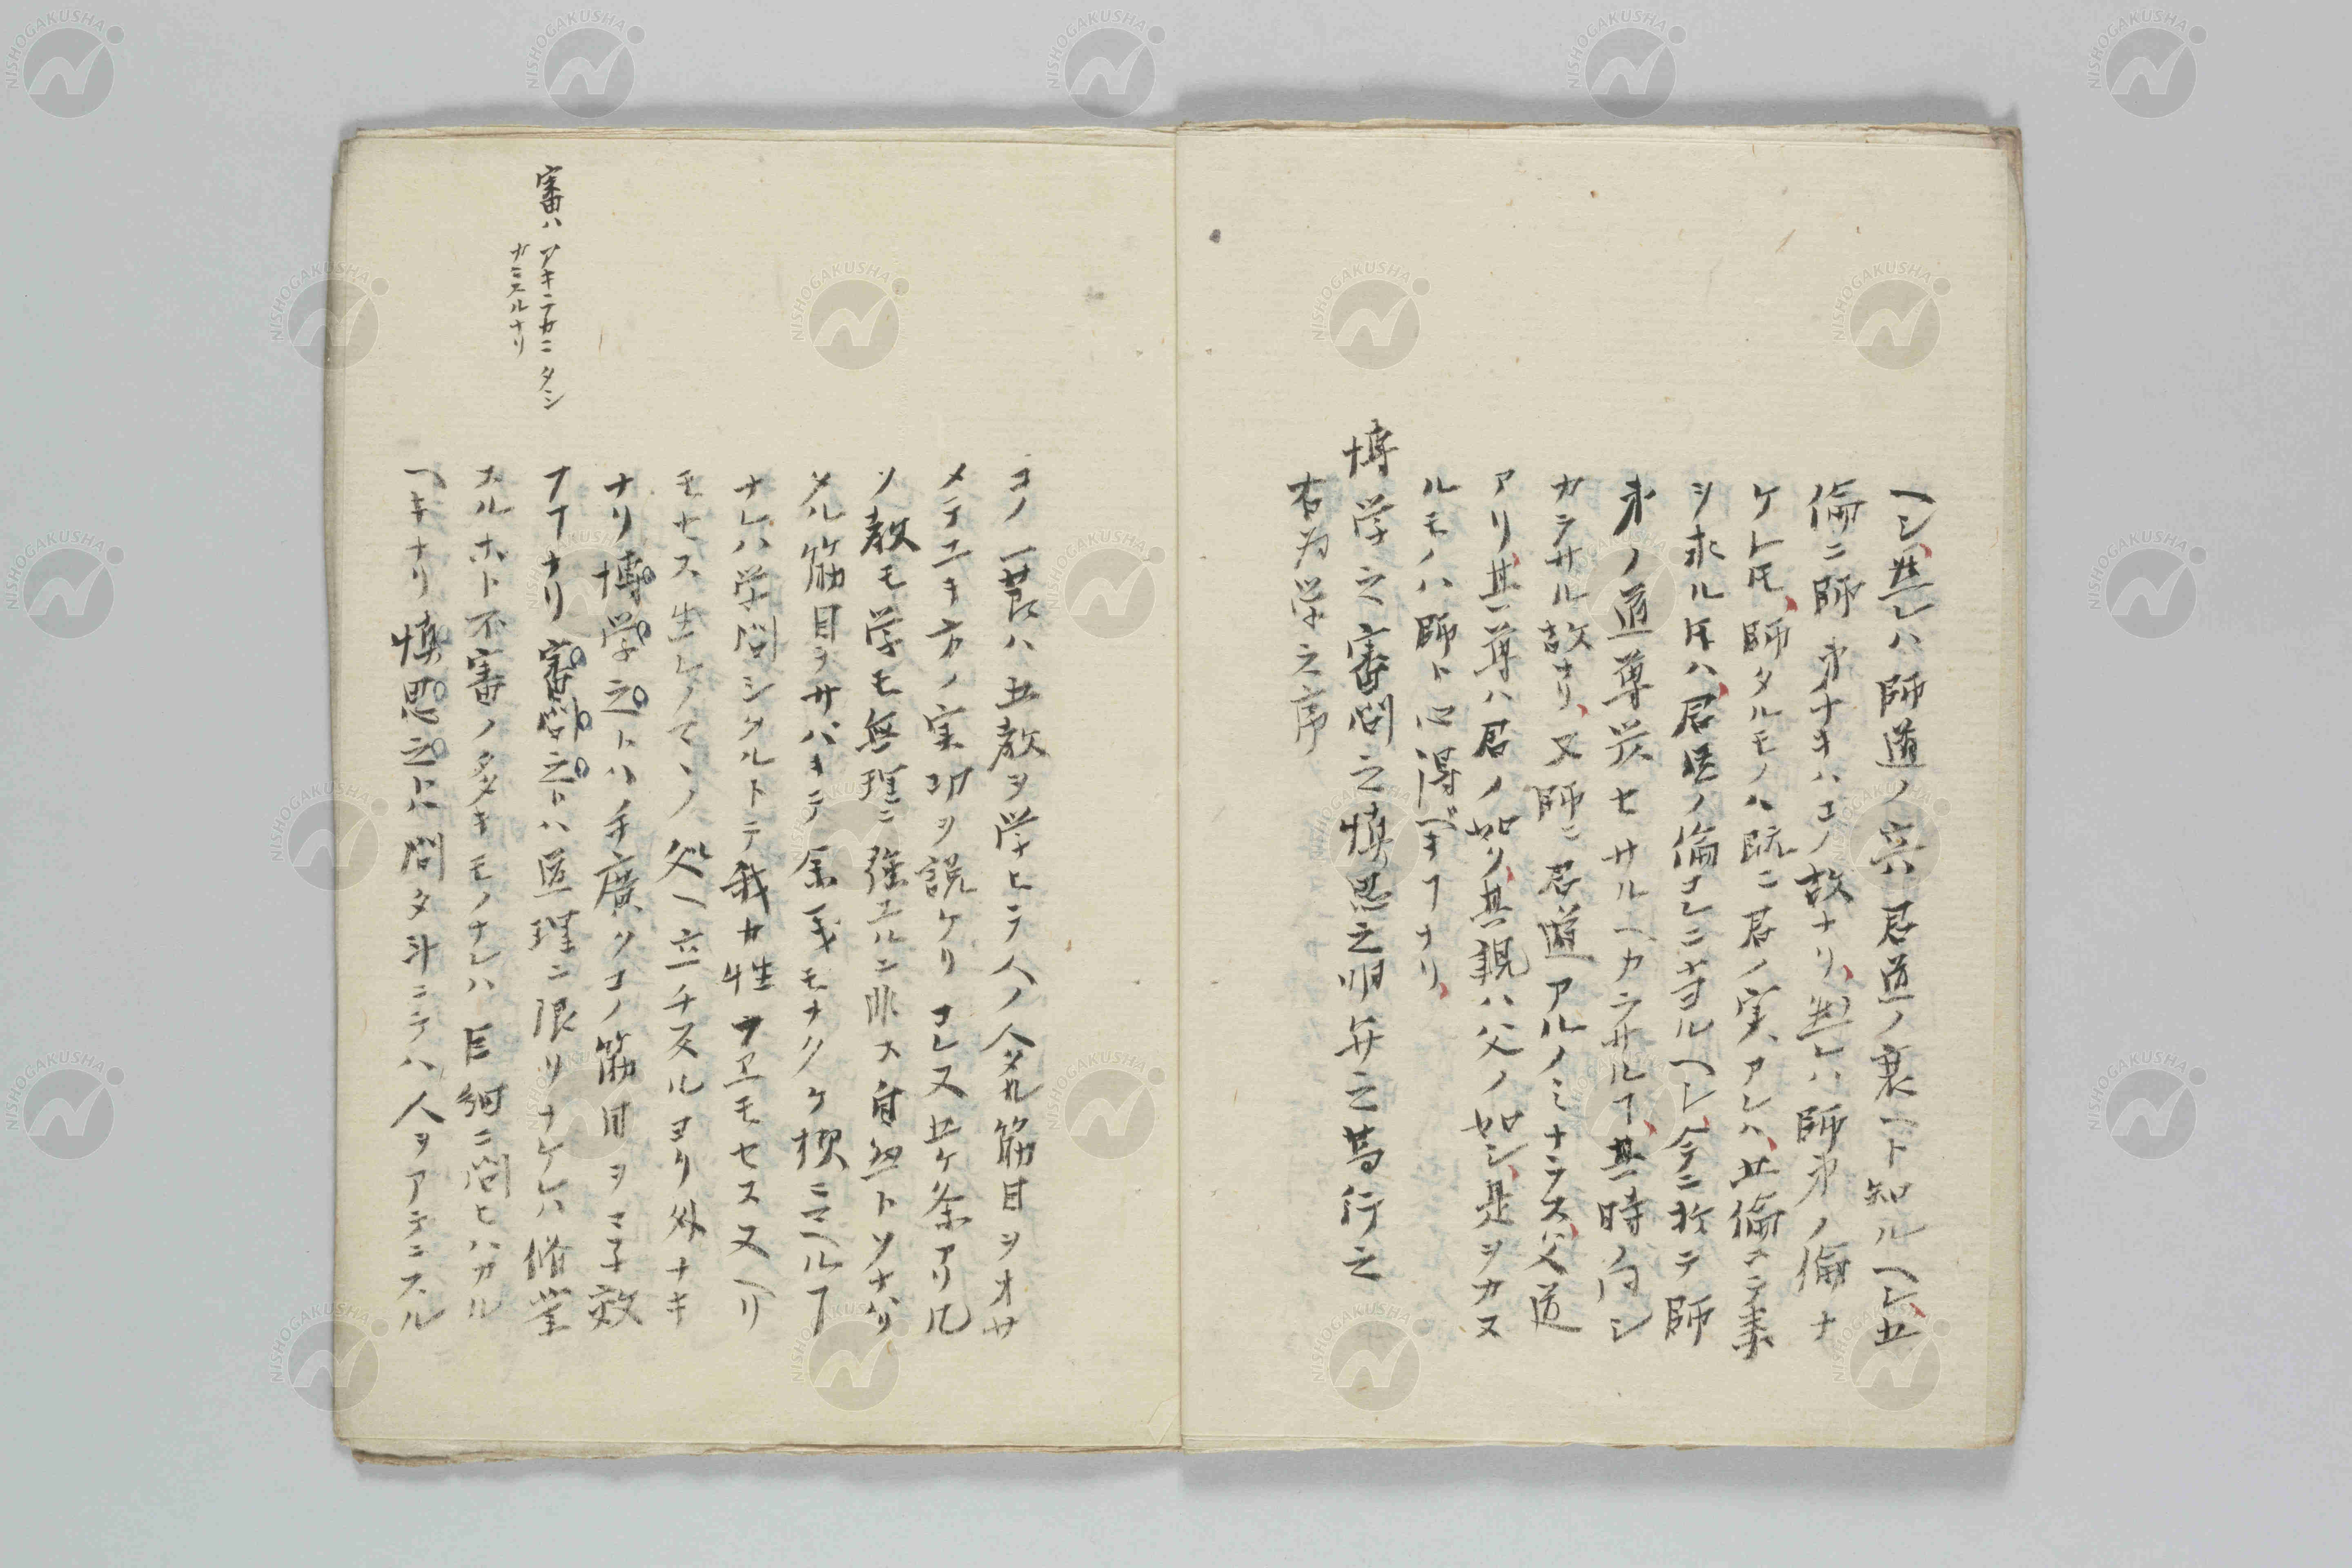 ヘシ、然レハ師道ノ興ハ君道ノ衰ヘト知ルヘシ、五
倫ニ師弟ナキハコノ故ナリ、然レハ師弟ノ倫ナ
ケレ𪜈、師タルモノハ既ニ君ノ実アレハ、五倫ニテ事
ヲ求ル片ハ、君臣ノ倫コレニ当ルヘシ、今ニ於テ師
弟ノ道尊崇セサルヘカラサルヿ、其時ノ向シ
カラサル故ナリ、又師ニ君道アルノミナラス、父道
アリ、其尊ハ君ノ如ク、其親ハ父ノ如シ、是ヲカヌ
ルモノハ師ト心得ベキヿナリ、
博学之審問之慎思之明弁之篤行之
右為学之序
コノ一節ハ五教ヲ学ヒテ人ノ人タル筋目ヲオサ
メテユキ方ノ実功ヲ説ケリコレ又五ケ条アリ凡
ソ教モ学モ無理ニ強ユルニ非ス自然トソナハリ
タル筋目ヲサバキテ余義モナクケ様ニマヘルヿ
ナレハ学問シタルトテ我カ性ヲヱモセス又ヘリ
モセス生レノマヽノ処ヘ立チ入ルヨリ外ナキ
ナリ博学之トハ手広クコノ筋目ヲマネ效
フヿナリ審問之トハ道理ニ限リナケレハ修業
スルホト不審ノ多キモノナレハ巨細ニ問ヒハカル
ヘキナリ慎思之トハ問タ斗ニテハ人ヲアテニスル
審ハ
アキラカニタシ
カニスルナリ